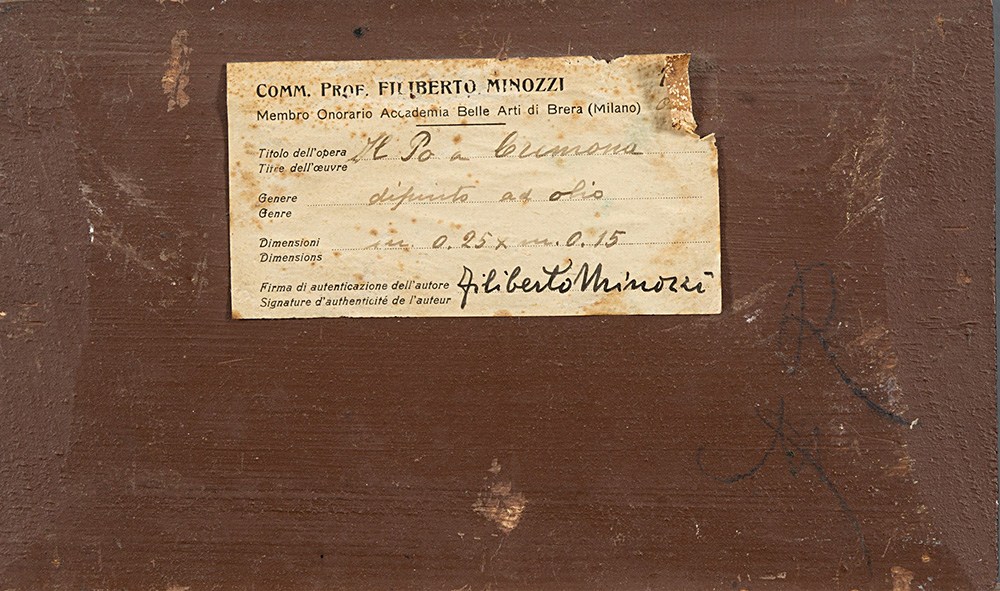 COMM. PROF. FILIBERTO MINOZZI
Membro Onorario Accademia Belle Arti di Brera (Milano)
Titolo dell'opera Il Po a Cremona
Titre dell'œuvre
Genere dipinto ad olio
Genre
Dimensioni m. 0.25 x m. 0.15
Dimensions
Firma di autenticazione dell'autore Filiberto Minozzi
Signature d'authenticité de l'auteur